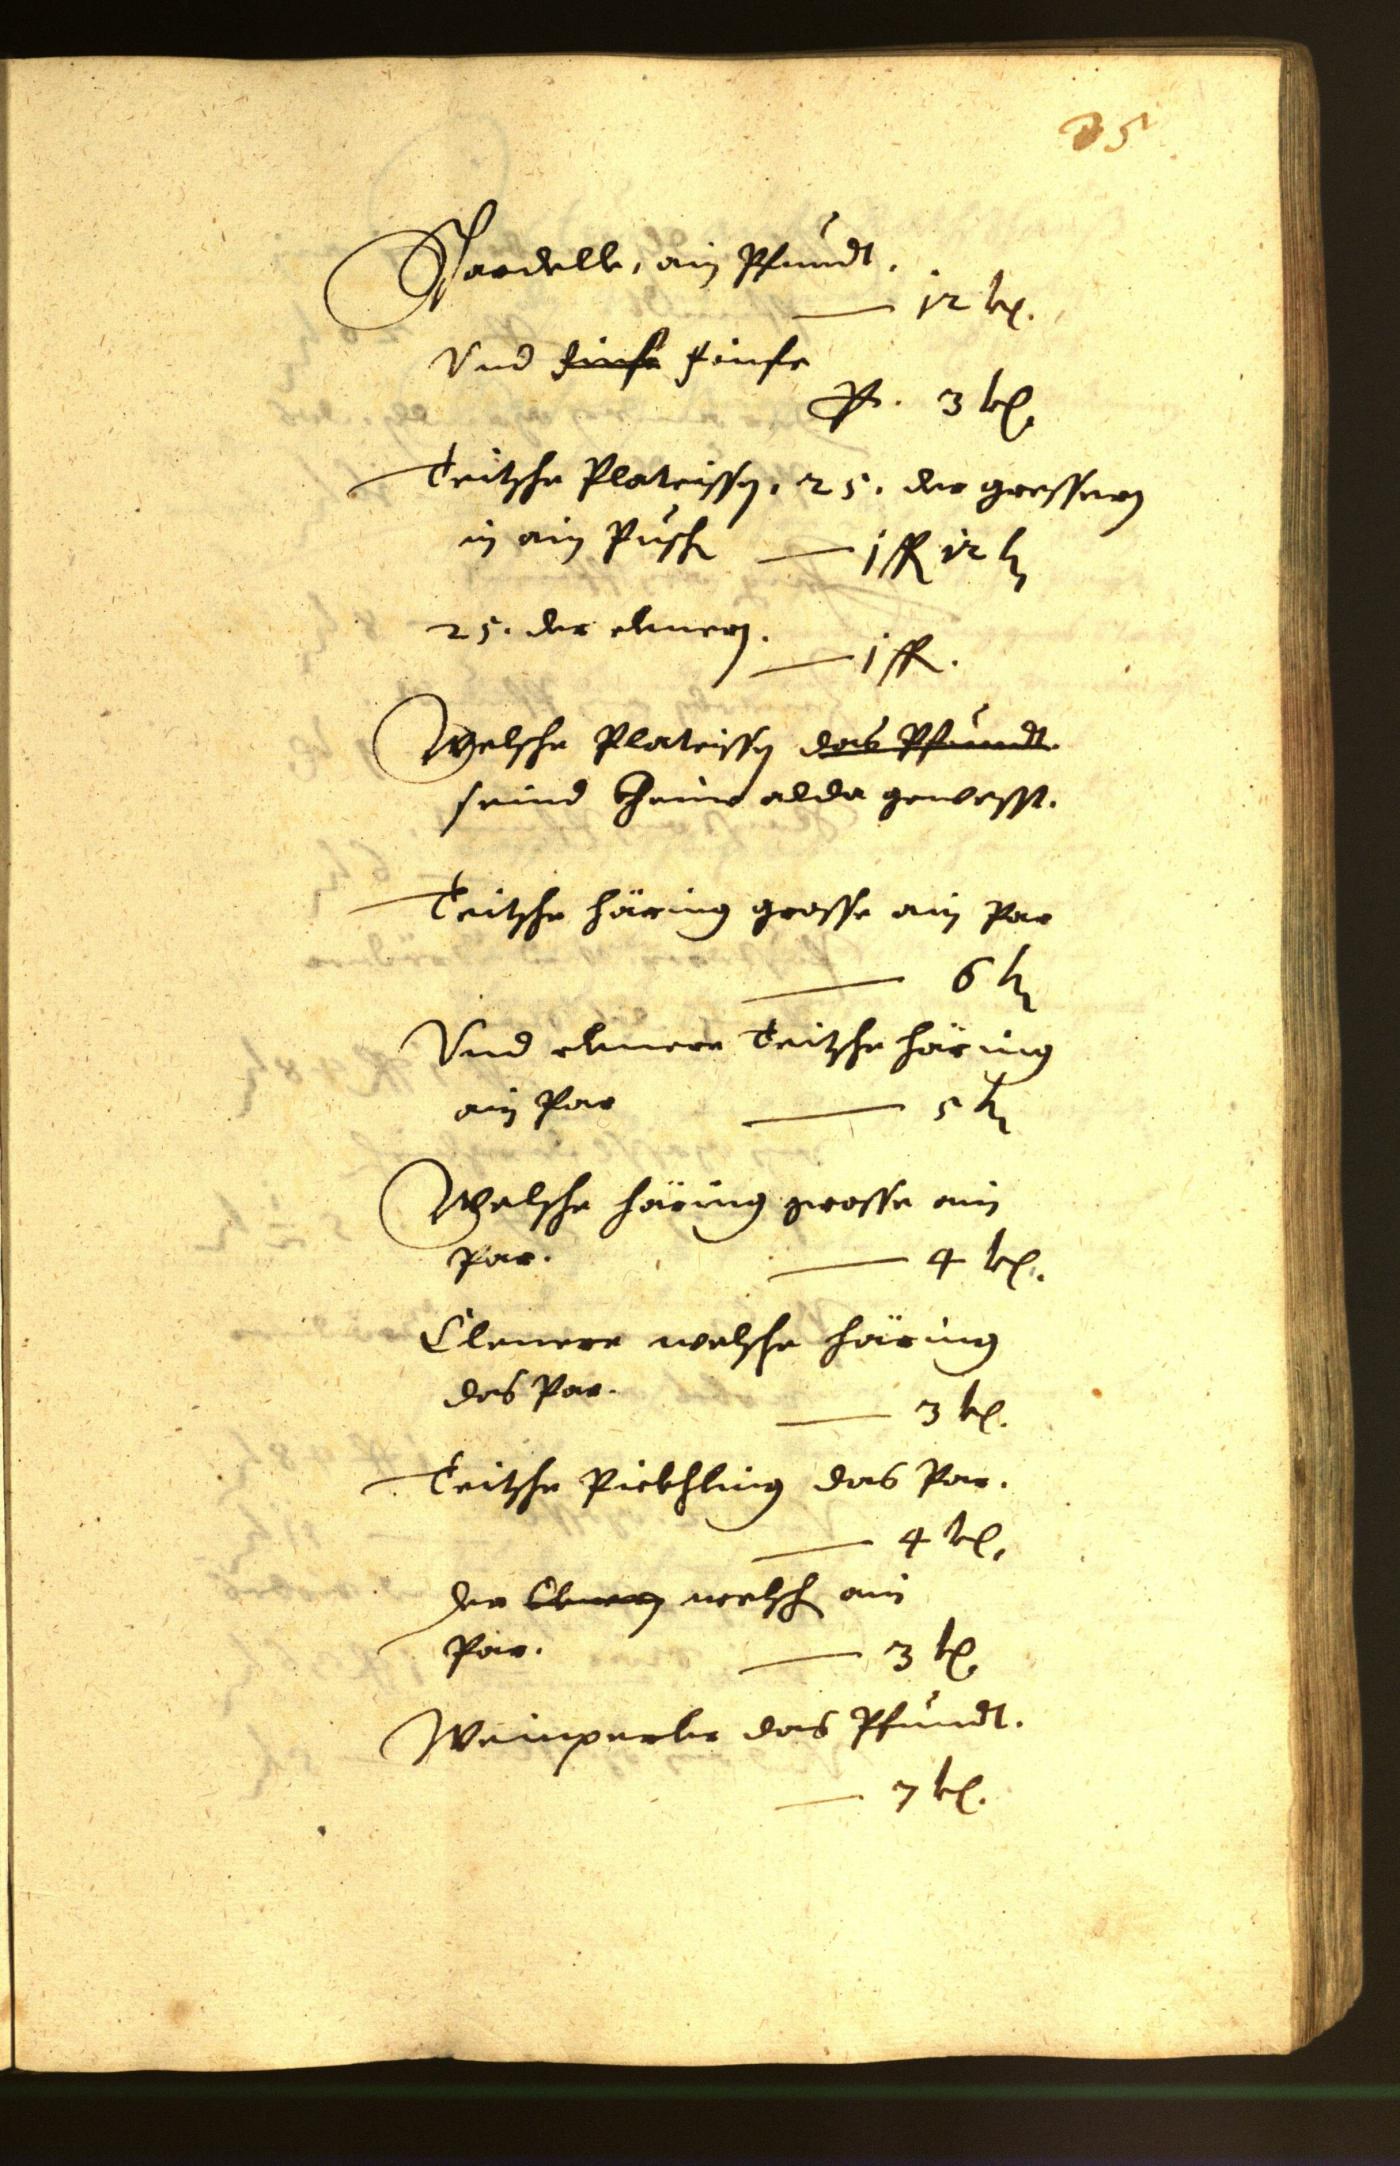 35
Sardelle, ain Pfundt.
12 kr.
Vnd finfe finfe
P. 3 kr.
Teitsche Plateissn, 25. der gressern
in ain Pusch — 1 fl 12 kr
25. der clenern.
— 1 fl.
Welsche Plateissn das Pfundt.
seind Kheine alda gewesst.
Teitsche häring grosse ain Par
— 6 kr
Vnd clenere Teitsche häring
ain Par — 5 kr
Welsche häring grosse ain
Par. — 4 kr.
Clenere welsche häring
das Par.
— 3 kr.
Teitsche Pickhling das Par.
— 4 kr.
der Clenern welsch ain
Par. — 3 kr.
Weinperler das Pfundt.
— 7 kr.